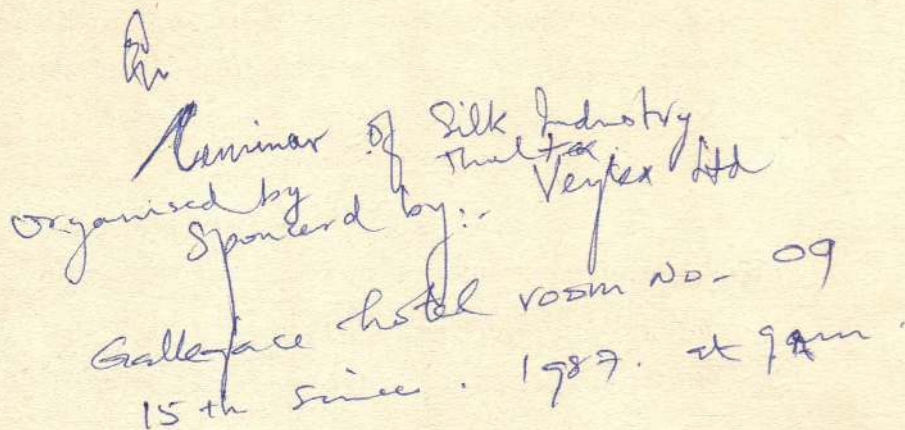 Seminar of Silk Industry
organised by Thultex
Sponcerd by:- Veytex Ltd
Galleface hotel room No- 09
15th 1987. at 9am.